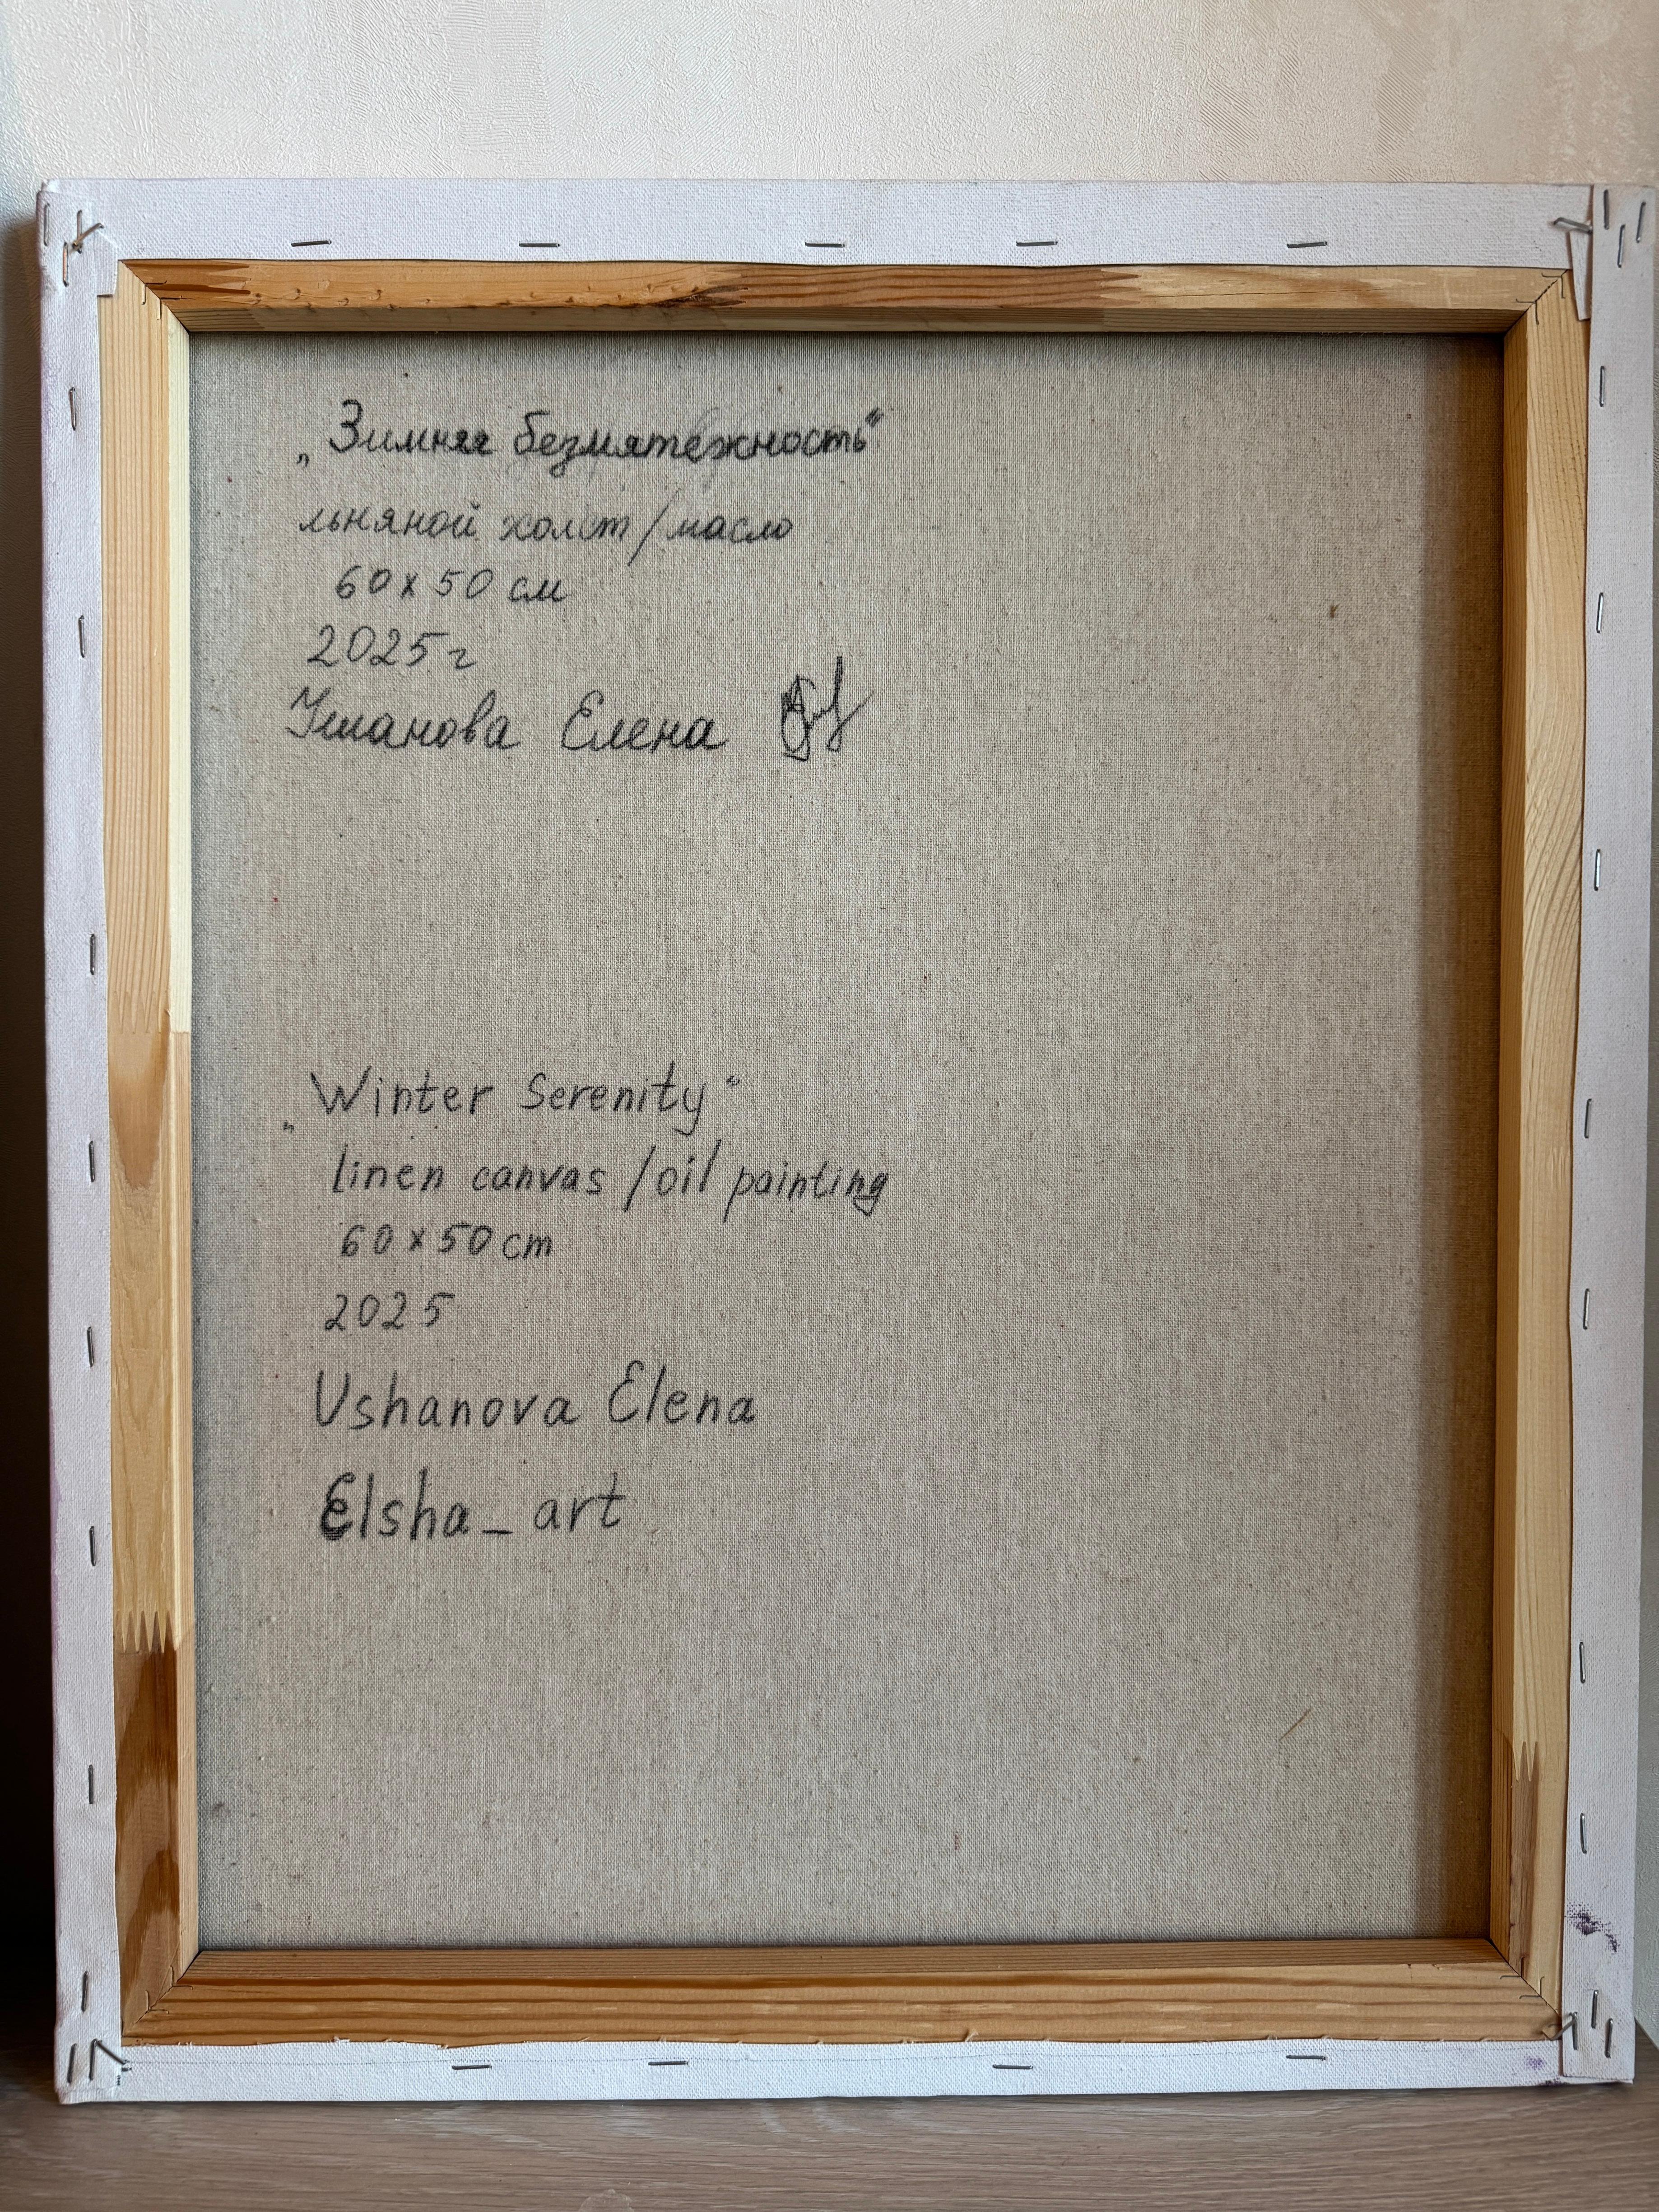 „Зимняя безмятежность“
льняной холст/масло
60х50 см
2025 г
Ушанова Елена
„Winter Serenity“
linen canvas/oil painting
60×50 cm
2025
Ushanova Elena
Elsha_art